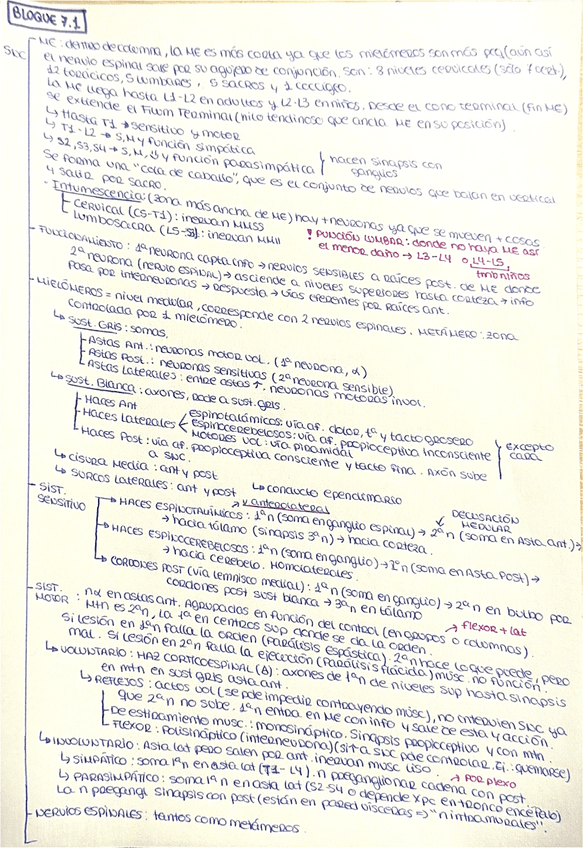 BLOQUE 7.1
SNC
ME: dentro de columna, la ME es más corta ya que los mielómeros son más peq (aún así
el nervio espinal sale por su agujero de conjunción. Son: 8 niveles cervicales
12 torácicos, 5 lumbares, 5 sacros y 1 coccígeo.
La ME llega hasta L1-L2 en adultos y L2-L3 en niños. Desde el cono terminal (fin ME)
se extiende el Filum Terminal (hilo tendinoso que ancla ME en su posición).
↳ Hasta T1 → sensitivo y motor
↳ T1-L2 → S, M y función simpática
↳ S2, S3, S4 → S, M, y función parasimpática
hacen sinapsis con
ganglios
Se forma una "cola de caballo", que es el conjunto de nervios que bajan en vertical
y salir por sacro.
- Intumescencia: (zona más ancha de ME) hay + neuronas ya que se mueven + cosas
Cervical (C5-T1): inervan MMSS
Lumbosacra (L5-S3): inervan MMII
! PUNCIÓN LUMBAR: donde no haya ME así
el menor daño → L3-L4 o L4-L5
tmb niños
- FUNCIONAMIENTO: 1ª neurona capta info → nervios sensibles a raíces post. de ME donde
2ª neurona (nervio espinal) → asciende a niveles superiores hasta corteza → info
pasa por interneuronas → respuesta → vías eferentes por raíces ant.
- MIELÓMEROS = nivel medular, corresponde con 2 nervios espinales. METÁMERO: zona
controlada por 1 mielómero.
↳ Sust. GRIS: somas.
Astas Ant.: neuronas motor vol. (1ª neurona, α)
Astas Post.: neuronas sensitivas (2ª neurona sensible)
Astas Laterales: entre astas ↑. neuronas motoras invol.
↳ Sust. Blanca: axones, rodea a sust. gris.
Haces Ant
Haces Laterales
espinotalámicos: vía af. dolor, tª y tacto grosero
espinocerebelosos: vía af. propioceptiva inconsciente
motores vol: vía piramidal
Haces Post: vía af. propioceptiva consciente y tacto fina. Axón sube
a SNC.
excepto
cara
↳ Cisura Media: ant y post
↳ Surcos Laterales: ant y post
↳ conducto ependimario
- SIST. SENSITIVO
v. anterolateral
DECUSACIÓN
MEDULAR
HACES ESPINOTALÁMICOS: 1ª n (soma en ganglio espinal) → 2ª n (soma en Asta ant.) →
→ hacia tálamo (sinapsis 3ª n) → hacia corteza.
HACES ESPINOCEREBELOSOS: 1ª n (soma en ganglio) → 2ª n (soma en Asta Post) →
→ hacia cerebelo. Homolaterales.
CORDONES POST (vía lemnisco medial): 1ª n (soma en ganglio) → 2ª n en bulbo por
cordones post sust blanca → 3ª n en tálamo
- SIST. MOTOR: nα en astas ant. Agrupadas en función del control (en grupos o columnas).
→ flexor + lat
Mtn es 2ª n, la 1ª en centros sup donde se da la orden.
Si lesión en 1ª n falla la orden (parálisis espástica). 2ª n hace lo que puede, pero
mal. Si lesión en 2ª n falla la ejecución (parálisis flácida) músc. no función.
↳ VOLUNTARIO: HAZ CORTICOESPINAL: axones de 1ª n de niveles sup hasta sinapsis
en mtn en sust gris asta ant.
↳ REFLEJOS: actos vol (se pde impedir contrayendo músc), no intervien SNC ya
que 2ª n no sube. 1ª n entra en ME con info y sale de esta y acción.
De estiramiento musc.: monosináptico. Sinapsis propioceptivo y con mtn.
FLEXOR: polisináptico (interneurona) (sit a SNC pde controlar. Ej.: quemarse)
↳ INVOLUNTARIO: Asta lat pero salen por ant. inervan musc liso.
↳ SIMPÁTICO: soma 1ª n en asta lat (T1-L4). n preganglionar cadena con post.
→ por plexo
↳ PARASIMPÁTICO: soma 1ª n en asta lat (S2-S4 o depende xpc en tronco encéfalo)
La n pregangl sinapsis con post (están en pared vísceras => "n intramurales".
- NERVIOS ESPINALES: tantos como metámeros.